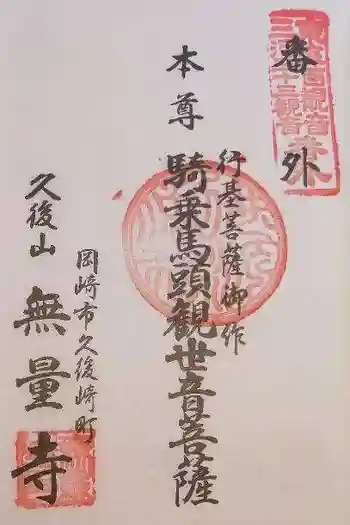 番外
本尊
行基菩薩御作
騎乗馬頭観世音菩薩
岡崎市久後崎町
久後山
無量寺